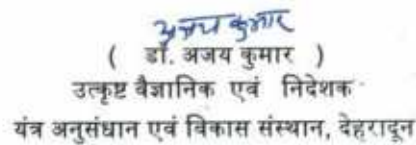 अजय कुमार
( डॉ. अजय कुमार )
उत्कृष्ट वैज्ञानिक एवं निदेशक
यंत्र अनुसंधान एवं विकास संस्थान, देहरादून